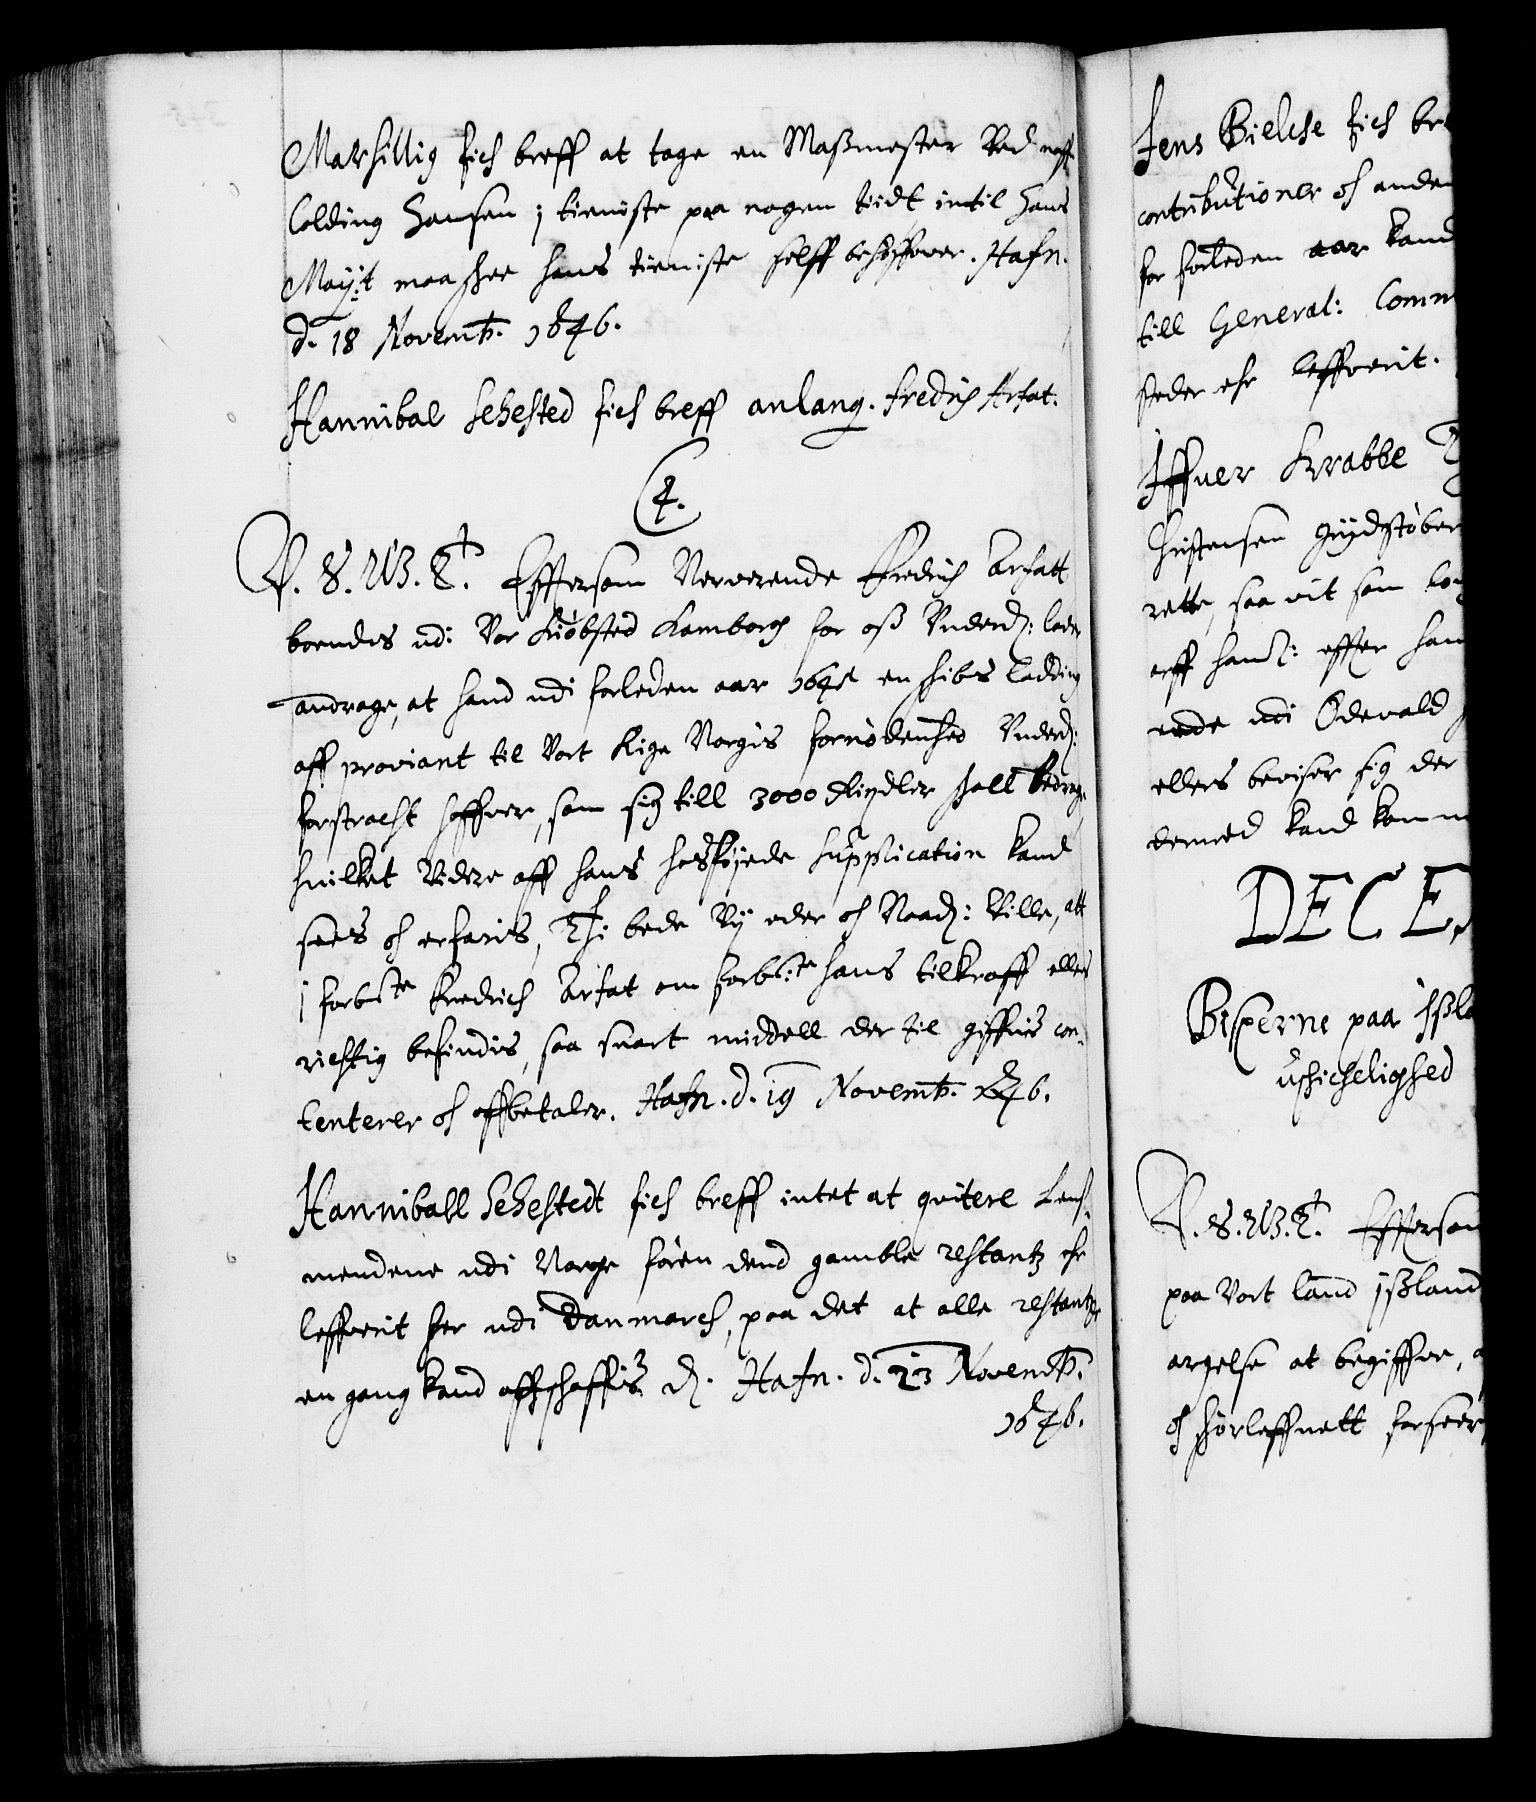 Marhillig fich breff at tage en Maßmester Ved naffn
Colding Hansen j tieniste paa nogen tiidt intil hans
May:t maa skee hans tieniste selff behøffver. Hafn.
d. 18 Novemb. 1646.
Hannibal Sehested fich breff anlang. Fredrich Arfat.
C 4.
V. S. W. G. T. Efftersom Nerverende Fredrich Arfatt
boendis udi Vor Kiøbsted Hamborg for oß Underd: lader
andrage, at hand udi forleden aar 1645 en skibs ladding
aff proviant til Vort Rige Norgis fornødenhed Underd:
forstracht haffver, som sig till 3000 Rixdler skall bedrage,
huilket videre aff hans hosføyede supplication kand
sees oc erfaris, Thi bede Vy eder oc Naad: Ville, att
j forb:te Fredrich Arfat om forb:te hans tilkraff ellers
richtig befindis, saa snart middell der til giffuis con-
tenterer oc affbetaler. Hafn. d. 19 Novemb. 1646.
Hanniball Sehestedt fich breff intet at qvitere Lens-
mendene udi Norge føren dend gamble restantz ehr
leffverit her udi Danmarch, paa det at alle restantzer
en gang kand affskaffis. Hafn. d. 23 Novemb.
1646.
Jens Bielche fich bre
contributioner oc anden
for forleden aar kand
till General: Comm
steder ehr leffverit.
Iffuer Krabbe
Christensen Grydstøber
rette, saa vit som
arff hand: effter han
ende udi Odevald
ellers beviser sig der
dermed kand komme
DECE
Bisperne paa Ißla
uskichelighed
V. S. W. G. T. Effterson
paa Vort land Ißland
argelse at begiffve,
oc skørleffnett forseer